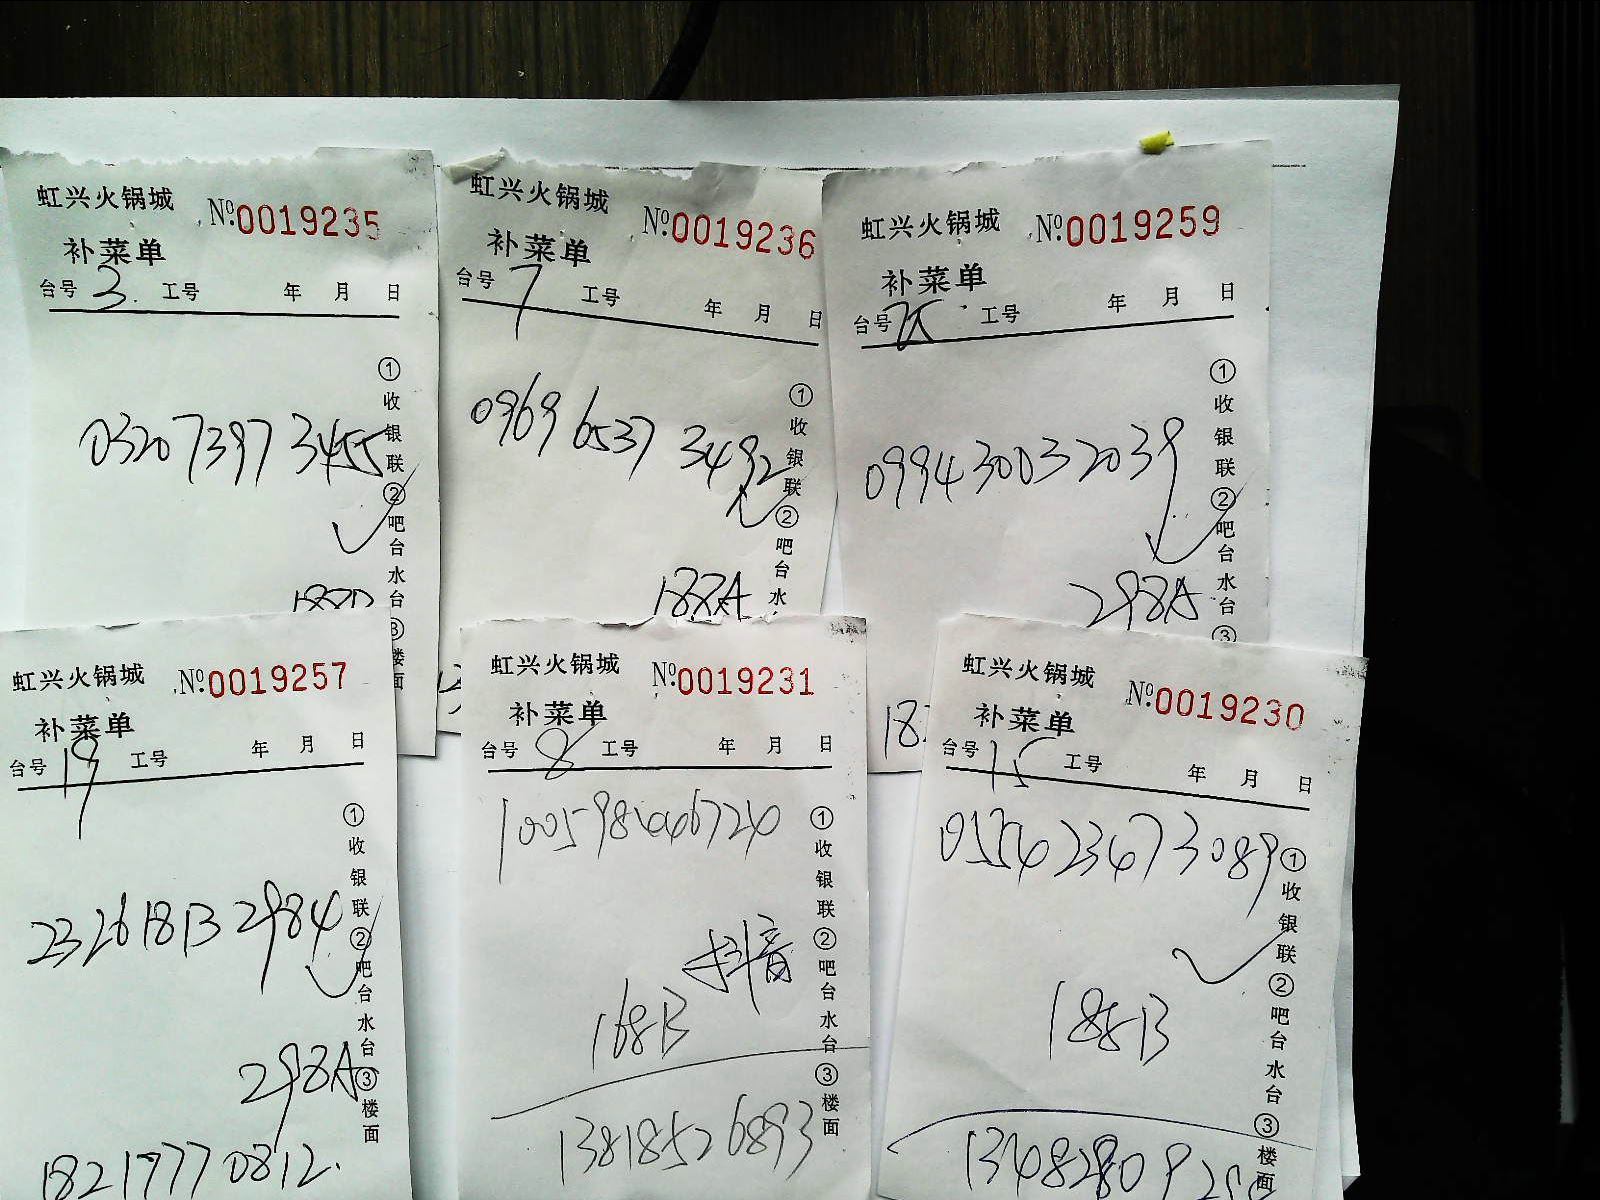 虹兴火锅城 №:0019235
补菜单
台号 3. 工号 年 月 日
0320 7397 3455
①收银联②吧台水台③楼面
虹兴火锅城 №:0019236
补菜单
台号 7 工号 年 月 日
0969 6537 3492
188A
①收银联②吧台水
虹兴火锅城 №:0019259
补菜单
台号 工号 年 月 日
0994 3003 2039
298A
①收银联②吧台水台③
虹兴火锅城 №:0019257
补菜单
台号 19 工号 年 月 日
2326 1813 2984
298A
18219770812.
①收银联②吧台水台③楼面
虹兴火锅城 №:0019231
补菜单
台号 8 工号 年 月 日
抖音
168B
13818526893
①收银联②吧台水台③楼面
虹兴火锅城 №:0019230
补菜单
台号 15 工号 年 月 日
0554 2347 3089
188B
①收银联②吧台水台③楼面